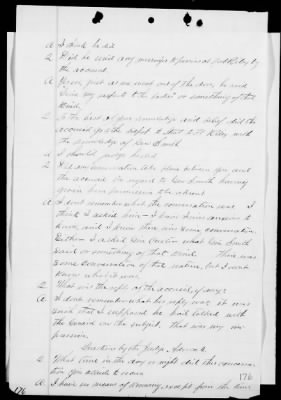 A I think he did.
Q Did he send any message to persons at Fort Riley by the accused.
A Yes, just as we went out of the door, he said "Give my respects to the ladies" or something of that kind.
Q To the best of your knowledge and belief did the accused go the night to Fort Riley with the knowledge of Gen Smith
A I should judge he did.
Q Had any conversation take place between you and the accused in regard to Gen Smith having given him permission to be absent
A I dont remember what the conversation was. I think I asked him – I have and I know there was some conversation. Either I asked Gen Custer what Gen Smith said or something of that kind. There was some conversation of this nature, but I dont know what it was.
Q What was the reply of the accused, if any?
A I dont remember what his reply was; it was such that I supposed he had talked with the General on the subject. That was my impression.
Question by the Judge Advocate
Q What time in the day or night did this conversation you allude to occur
A I have no means of knowing, except from the time
176
176